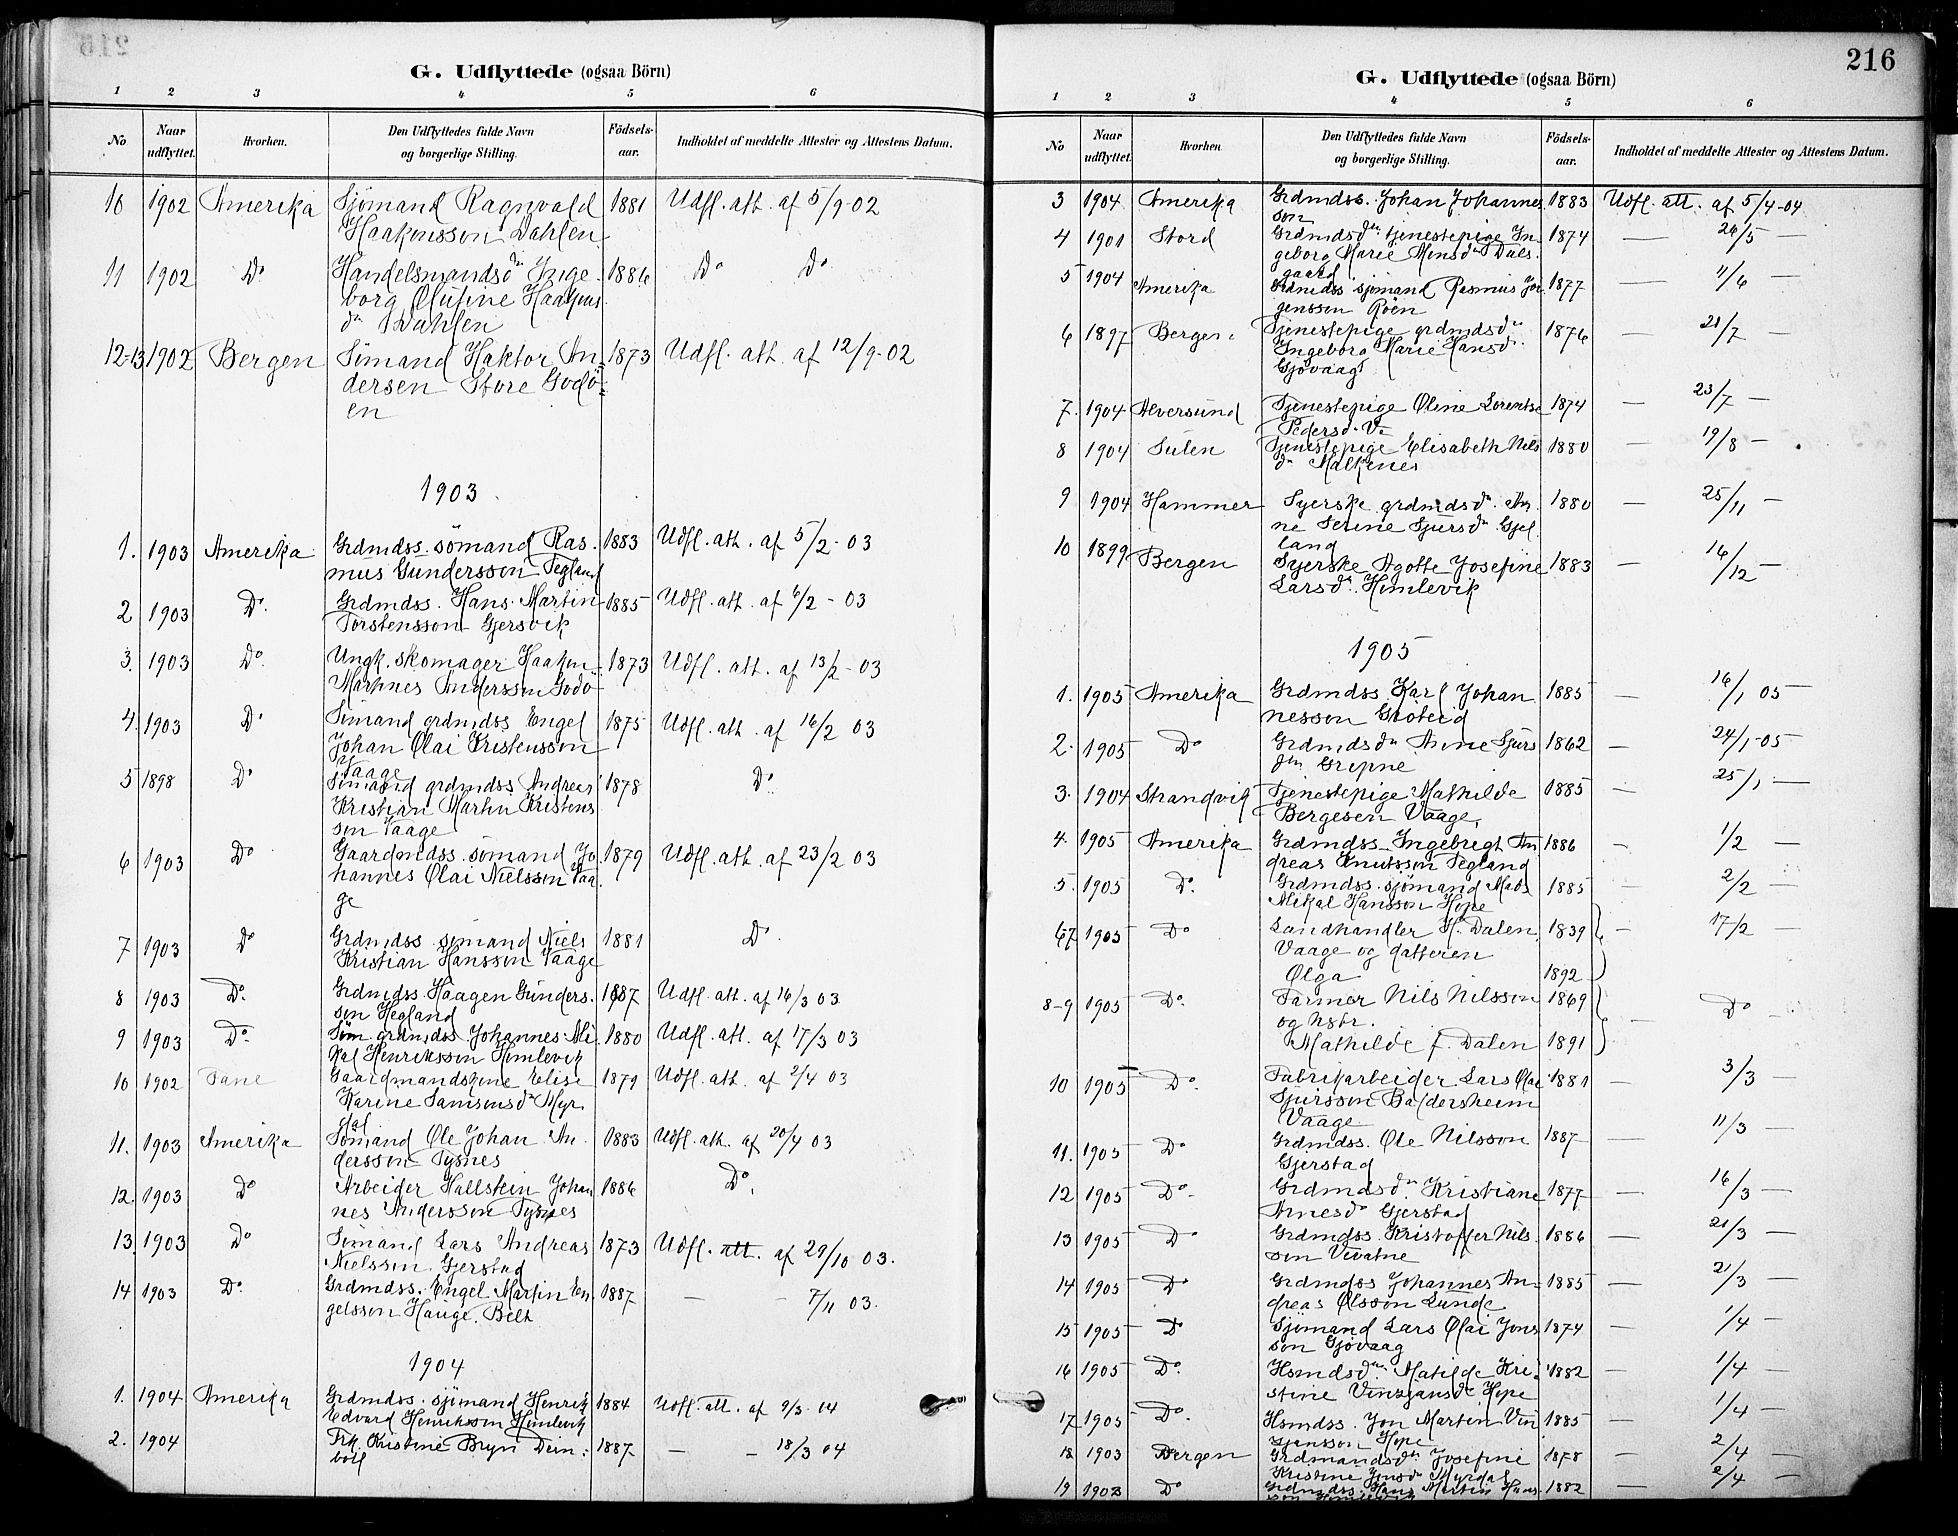 G. Udflyttede (ogsaa Börn)
1 2 3 4 5 6
No Naar udflyttet. Hvorhen. Den Udflyttedes fulde Navn og borgerlige Stilling. Födsels-aar. Indholdet af meddelte Attester og Attestens Datum.
10 1902 Amerika Sjömand Ragnvald 1881 Udfl. att. af 5/9-02
Haakonsson Dahlen
11 1902 Do Handelsmandsdr Inge- 1886 Do Do
borg Olufine Haagens
dr Dahlen
12-13 1902 Bergen Sömand Haktor An 1873 Udfl. att. af 12/9-02
dersen Store Godö-
en
1903
1. 1903 Amerika Grdmdss. sömand Ras- 1883 Udfl. att. af 5/2-03
mus Gundersson Tegland
2 1903 Do. Grdmdss. Hans Martin 1885 Udfl. att. af 6/2-03
Torstensson Gjersvik
3. 1903 Do. Ungk. skomager Haakon 1873 Udfl. att. af 13/2-03
Martines Andersson Godö
4. 1903 Do Sömand grdmdss Engel 1875 Udfl. att. af 16/2 03
Johan Olai Kristensson
Vaage
5 1898 Do Sömand grdmdss Andreas 1878 Do
Kristian Martin Kristens
son Vaage
6 1903 Do Gaardmdss. sömand Jo 1879 Udfl. att. af 23/2 03
hannes Olai Nielsson Vaa
ge
7 1903 Do Grdmdss. sömand Niels 1881 Do
Kristian Hansson Vaage
8 1903 Do. Grdmdss. Haagen Gunders- 1887 Udfl. att. af 16/3 03
son Hegland
9 1903 Do Söm grdmdss Johannes Mi 1880 Udfl. att. af 17/3 03
kal Henriksson Himlevik
10 1902 Fane Gaardmandskone Elise 1879 Udfl. att. af 2/4 03
Karine Samsonsdr Myr
dal
11. 1903 Amerika Sömand Ole Johan An 1883 Udfl. att. af 20/4 03
dersson Tysnes
12. 1903 Do Arbeider Hallstein Johan 1886 Do.
nes Andersson Tysnes
13. 1903 Do Sömand Lars Andreas 1873 Udfl. att. af 29/10 03.
Nielsson Gjerstad
14 1903 Do. Grdmdss. Engel Martin En 1887 — — 7/11 03.
gelsson Hauge. Belt
1904
1. 1904 Amerika Grdmdss. sjömand Henrik 1884 Udfl. att. af 9/3-04
Edvard Henriksson Himlevik
2. 1904 Frk. Kristine Bryn Dein- 1887 — — 18/3 04
boll
216
G. Udflyttede (ogsaa Börn)
1 2 3 4 5 6
No Naar udflyttet. Hvorhen Den Udflyttedes fulde Navn og borgerlige Stilling. Födsels-aar. Indholdet af meddelte Attester og Attestens Datum.
3 1904 Amerika Grdmdss. Johan Johannes 1883 Udfl. att. af 5/4-04
son
4 1901 Stord Grdmdsdr. tjenestepige In 1874 — 26/5 —
geborg Marie Monsdr Dals
gaard
5 1904 Amerika Grdmdss sjömand Rasmus Jör 1877 — 1/6 —
genssen Röen
6 1897 Bergen Tjenestepige grdmdsdr 1876 — 21/7 —
Ingeborg Marie Hansdr.
Gjövaag
7. 1904 Alversund Tjenestepige Oline Lorentse 1874 — 23/7 —
Pedersd.
8 1904 Sulen Tjenestepige Elisabeth Nils 1880 — 19/8 —
dr Malkenes
9 1904 Hammer Syerske grdmdsdr. An 1880 — 25/11 —
ne Serine Sjursdr Gjel
land
10 1899 Bergen Syerske Agotte Josefine 1883 — 16/12 —
Larsdr. Himlevik
1905
1. 1905 Amerika Grdmdss Karl Johan 1885 — 16/1 05 —
nesson Gröteig
2. 1905 Do Grdmdsdr Anne Sjurs 1862 — 24/1-05
dtr Gripne
3. 1904 Strandvik Tjenestepige Mathilde 1885 — 25/1 —
Bergesen Vaage
4. 1905 Amerika Grdmdss. Ingebrigt An 1886 — 1/2 —
dreas Knutsson Tegland
5. 1905 Do. Grdmdss. sjömand Mads 1885 — 2/2 —
Mikal Hansson Hope
67 1905 Do Landhandler H. Dalen, 1839 — 17/2 —
Vaage og datteren
Olga 1892
8-9 1905 Do. Farmer Nils Nilsson 1869 — Do —
og hstr.
Mathilde f. Dalen 1891
10 1905 Do. Fabrikarbeider Lars Olai 1881 — 3/3 —
Sjursson Baldersheim
Vaage
11. 1905 Do Grdmdss. Ole Nilsson 1887 — 11/3 —
Gjerstad
12 1905 Do. Grdmdsdr. Kristiane 1877 — 16/3 —
Arnesdr Gjerstad
13 1905 Do Grdmdss. Kristoffer Nils 1886 — 21/3 —
son Vevatne
14 1905 Do Grdmdss Johannes An- 1885 — 21/3 —
dreas Olsson Lunde
15 1905 Do Sjömand Lars Olai Jons 1874 — 1/4 —
son Gjövaag
16 1905 Do. Hsmdsdr. Matilde Kri 1882 — 1/4 —
stine Vinzjansdr Hope
17 1905 Do. Hsmdss. Jon Martin Vin 1885 — 1/4 —
zjansson Hope
18 1903 Bergen Grdmandsdr Josefine 1878 — 2/4 —
Kristine Jonsdr Myrdal
19 1903 Do Grdmdss. Hans Martin Hans 1882 — 2/4 —
son Himlevik